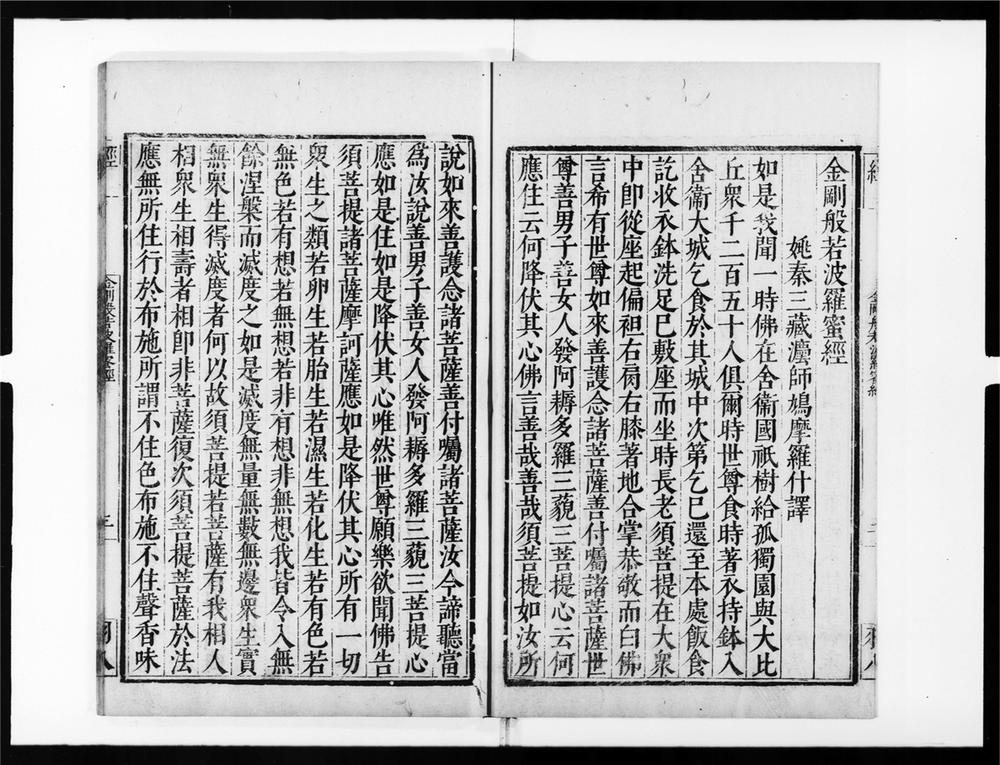 金剛般若波羅蜜經
姚秦三藏法師鳩摩羅什譯
如是我聞一時佛在舍衛國祇樹給孤獨園與大比
丘衆千二百五十人俱爾時世尊食時著衣持鉢入
舍衛大城乞食於其城中次第乞已還至本處飯食
訖收衣鉢洗足已敷座而坐時長老須菩提在大衆
中卽從座起偏袒右肩右膝著地合掌恭敬而白佛
言希有世尊如來善護念諸菩薩善付囑諸菩薩世
尊善男子善女人發阿耨多羅三藐三菩提心云何
應住云何降伏其心佛言善哉善哉須菩提如汝所
說如來善護念諸菩薩善付囑諸菩薩汝今諦聽當
爲汝說善男子善女人發阿耨多羅三藐三菩提心
應如是住如是降伏其心唯然世尊願樂欲聞佛告
須菩提諸菩薩摩訶薩應如是降伏其心所有一切
衆生之類若卵生若胎生若濕生若化生若有色若
無色若有想若無想若非有想非無想我皆令入無
餘涅槃而滅度之如是滅度無量無數無邊衆生實
無衆生得滅度者何以故須菩提若菩薩有我相人
相衆生相壽者相卽非菩薩復次須菩提菩薩於法
應無所住行於布施所謂不住色布施不住聲香味
經
金剛般若波羅蜜經
三